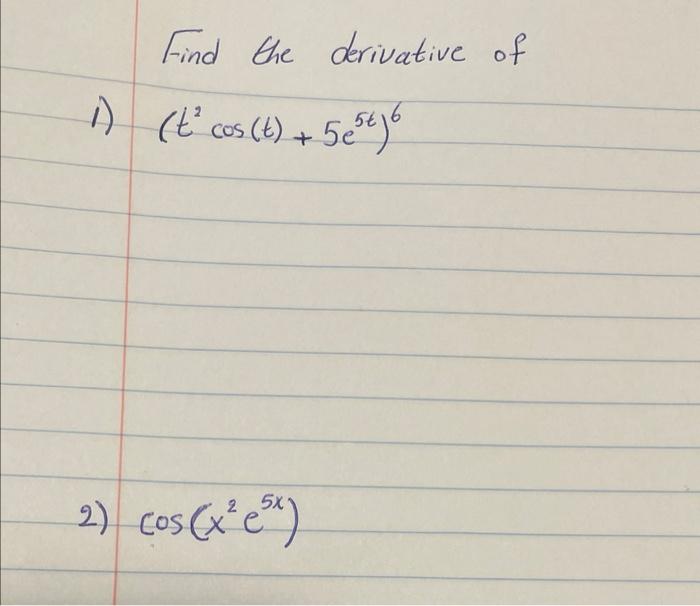 Find the derivative of
1) (t² cos(t) + 5e⁵ᵗ)⁶
2) cos(x² e⁵ˣ)